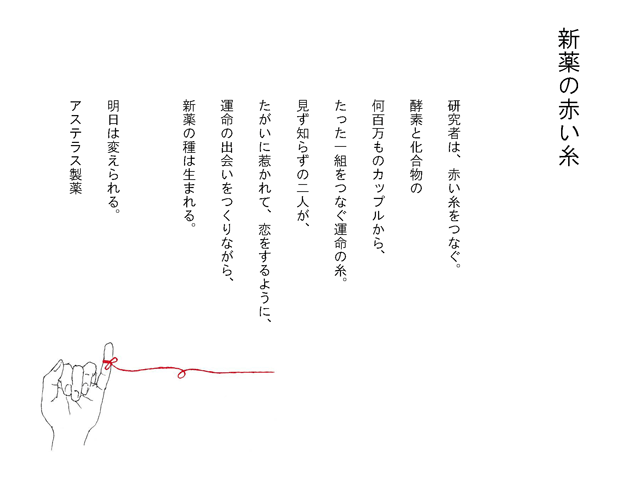 新薬の赤い糸
研究者は、赤い糸をつなぐ。
酵素と化合物の
何百万ものカップルから、
たった一組をつなぐ運命の糸。
見ず知らずの二人が、
たがいに惹かれて、恋をするように、
運命の出会いをつくりながら、
新薬の種は生まれる。
明日は変えられる。
アステラス製薬